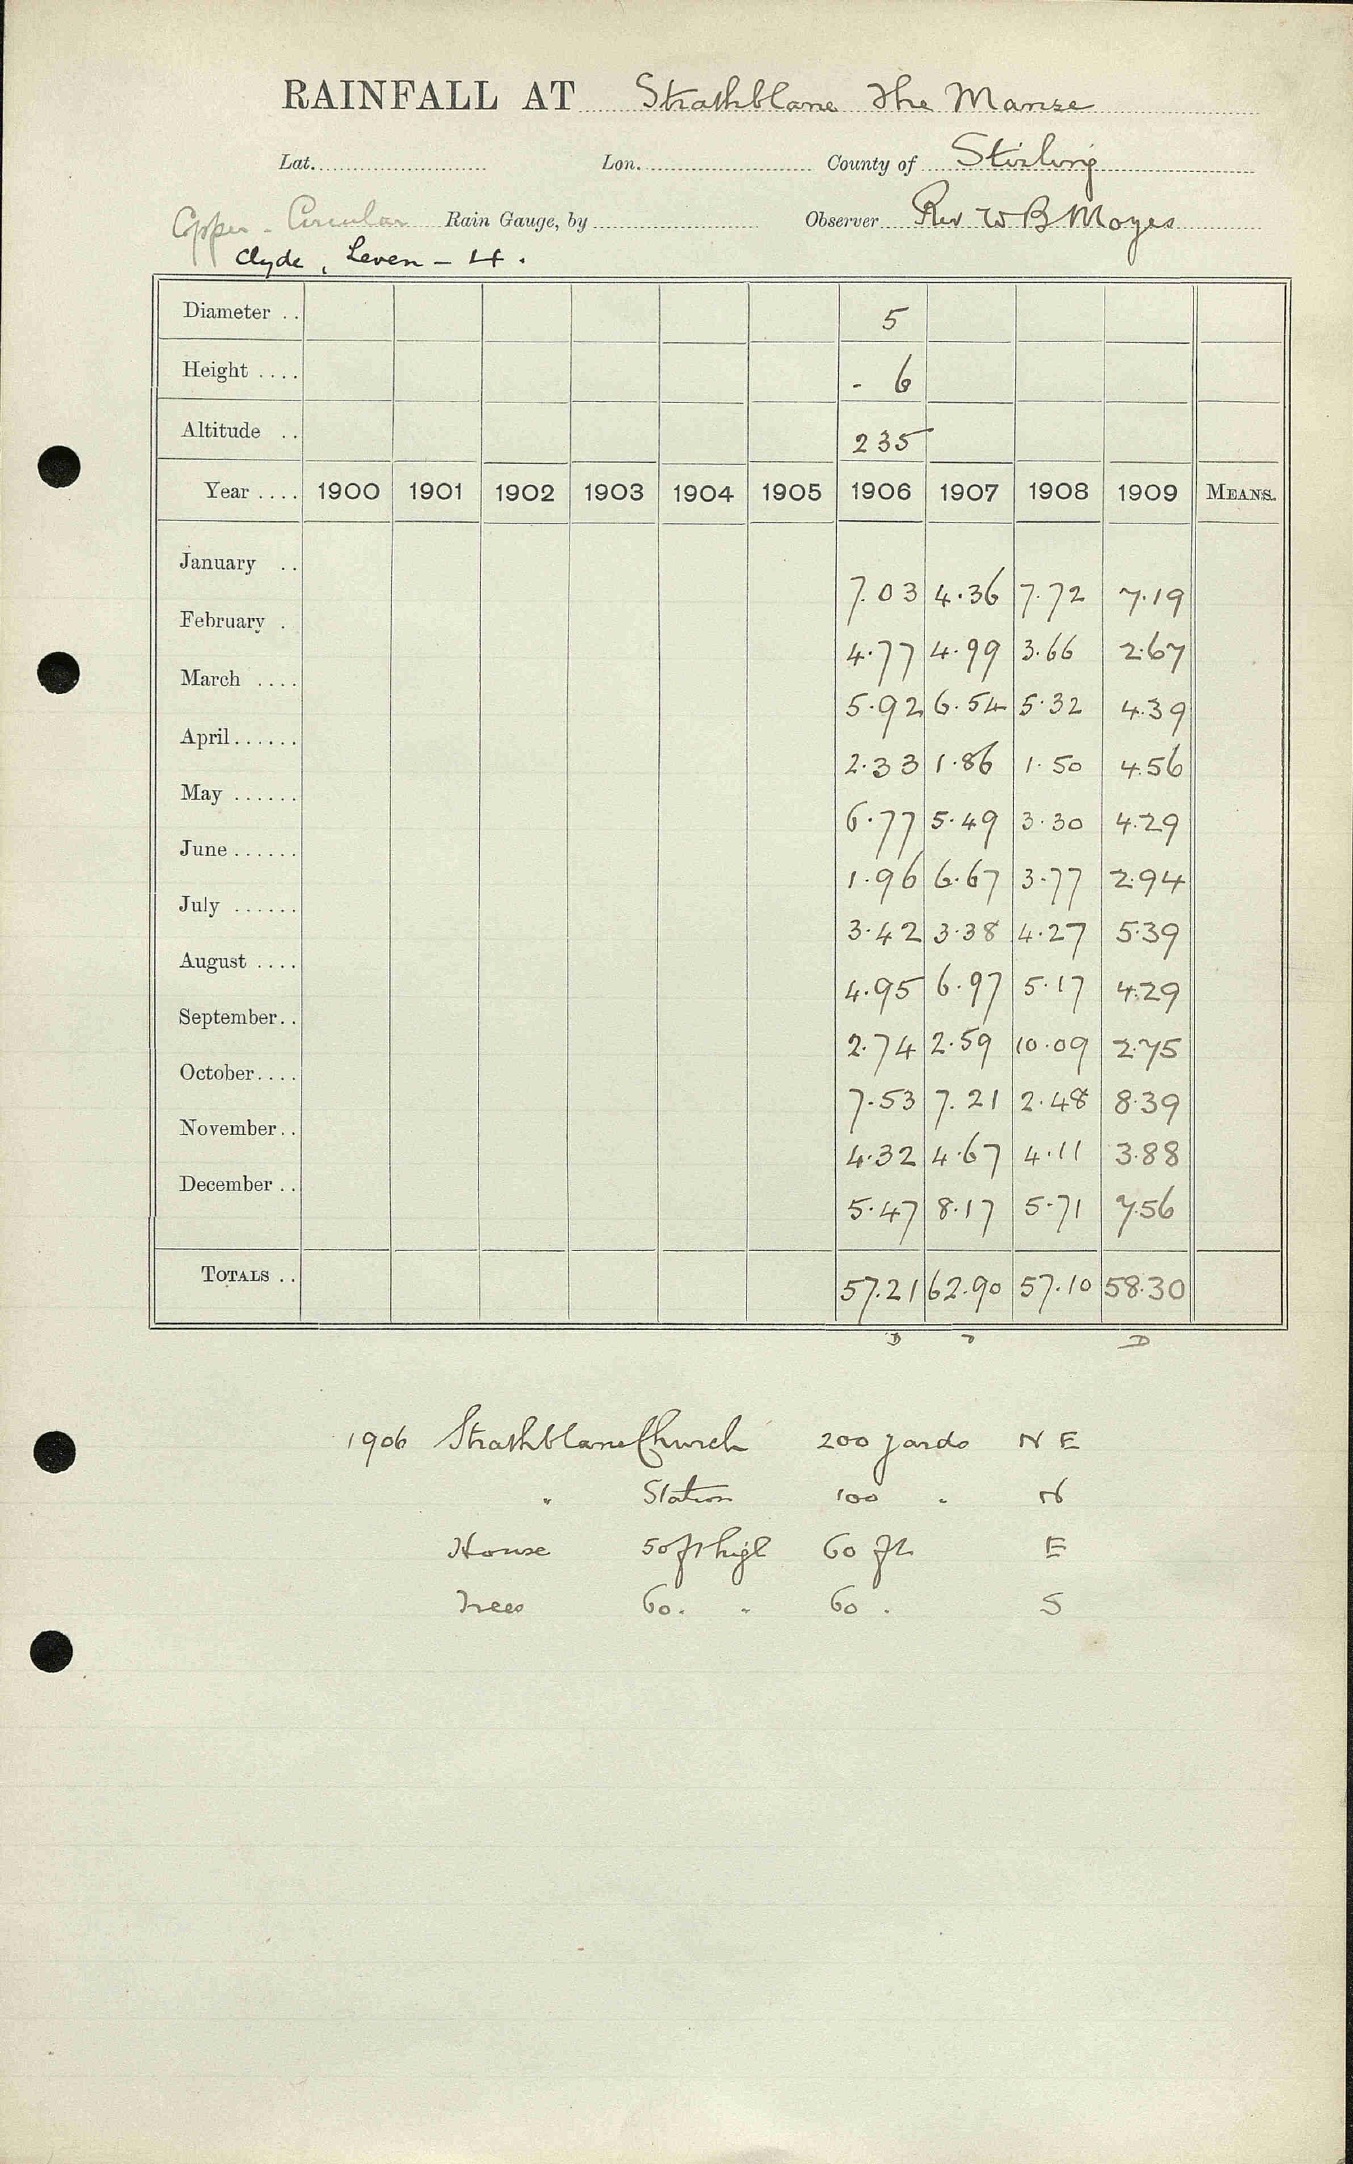 RAINFALL AT Strathblane The Manse
Lat. Lon. County of Stirling
Copper - Circular Rain Gauge, by Observer Rev W B Moyes
Clyde, Leven - 4.
Diameter .. 5
Height .... - 6
Altitude .. 235
Year .... 1900 1901 1902 1903 1904 1905 1906 1907 1908 1909 MEANS.
January .. 7.03 4.36 7.72 7.19
February . 4.77 4.99 3.66 2.67
March .... 5.92 6.54 5.32 4.39
April ...... 2.33 1.86 1.50 4.56
May ...... 6.77 5.49 3.30 4.29
June ...... 1.96 6.67 3.77 2.94
July ...... 3.42 3.38 4.27 5.39
August .... 4.95 6.97 5.17 4.29
September .. 2.74 2.59 10.09 2.75
October .... 7.53 7.21 2.48 8.39
November .. 4.32 4.67 4.11 3.88
December .. 5.47 8.17 5.71 7.56
TOTALS .. 57.21 62.90 57.10 58.30
D D
1906 Strathblane Church 200 yards N E
" Station 100 " N
House 50 ft high 60 ft E
Trees 60 . " 60 . S